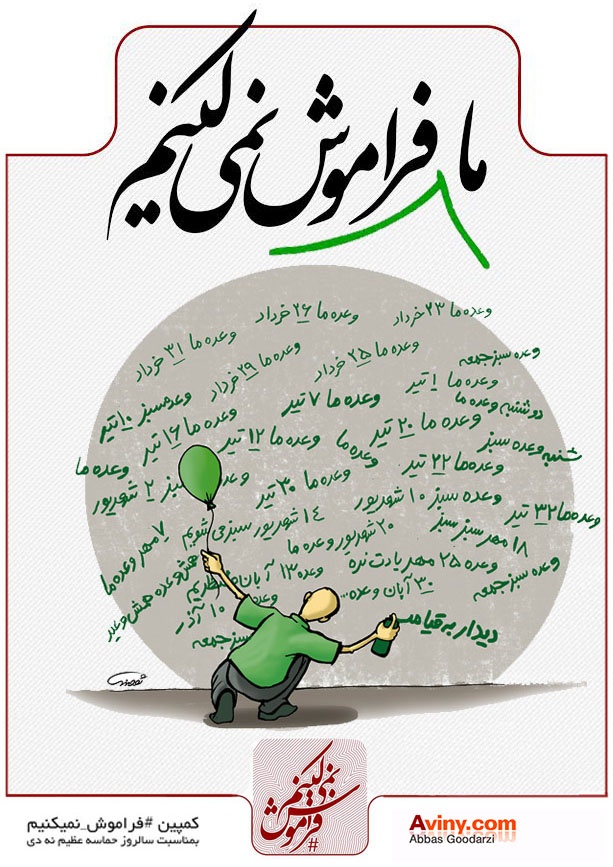 ما فراموش نمی کنیم
وعده ما ۲۳ خرداد
وعده ما ۲۶ خرداد
وعده ما ۳۱ خرداد
وعده سبز جمعه
وعده ما ۲۵ خرداد
وعده ما ۲۹ خرداد
وعده ما ۱ تیر
دوشنبه وعده ما
وعده ما ۷ تیر
وعده سبز ۱۰ تیر
وعده ما ۲۰ تیر
وعده ما ۱۶ تیر
شنبه وعده سبز
وعده ما ۱۲ تیر
وعده ما
وعده ما
وعده ما ۲۲ تیر
وعده ما ۳۰ تیر
سبز ۲ شهریور
وعده سبز ۱۰ شهریور
وعده ما ۳۲ تیر
۱۴ شهریور سبز می شویم
۱۸ مهر سبز سبز
۲۰ شهریور وعده ما
۷ مهر وعده ما
وعده ۲۵ مهر یادت نره
وعده سبز جمعه
وعده ۱۳ آبان
۳۰ آبان وعده...
وعده
۱۰ آذر
سبز جمعه
دیدار به قیامت
#فراموش نمی کنیم
کمپین #فراموش_نمیکنیم
بمناسبت سالروز حماسه عظیم نه دی
Aviny.com
Abbas Goodarzi